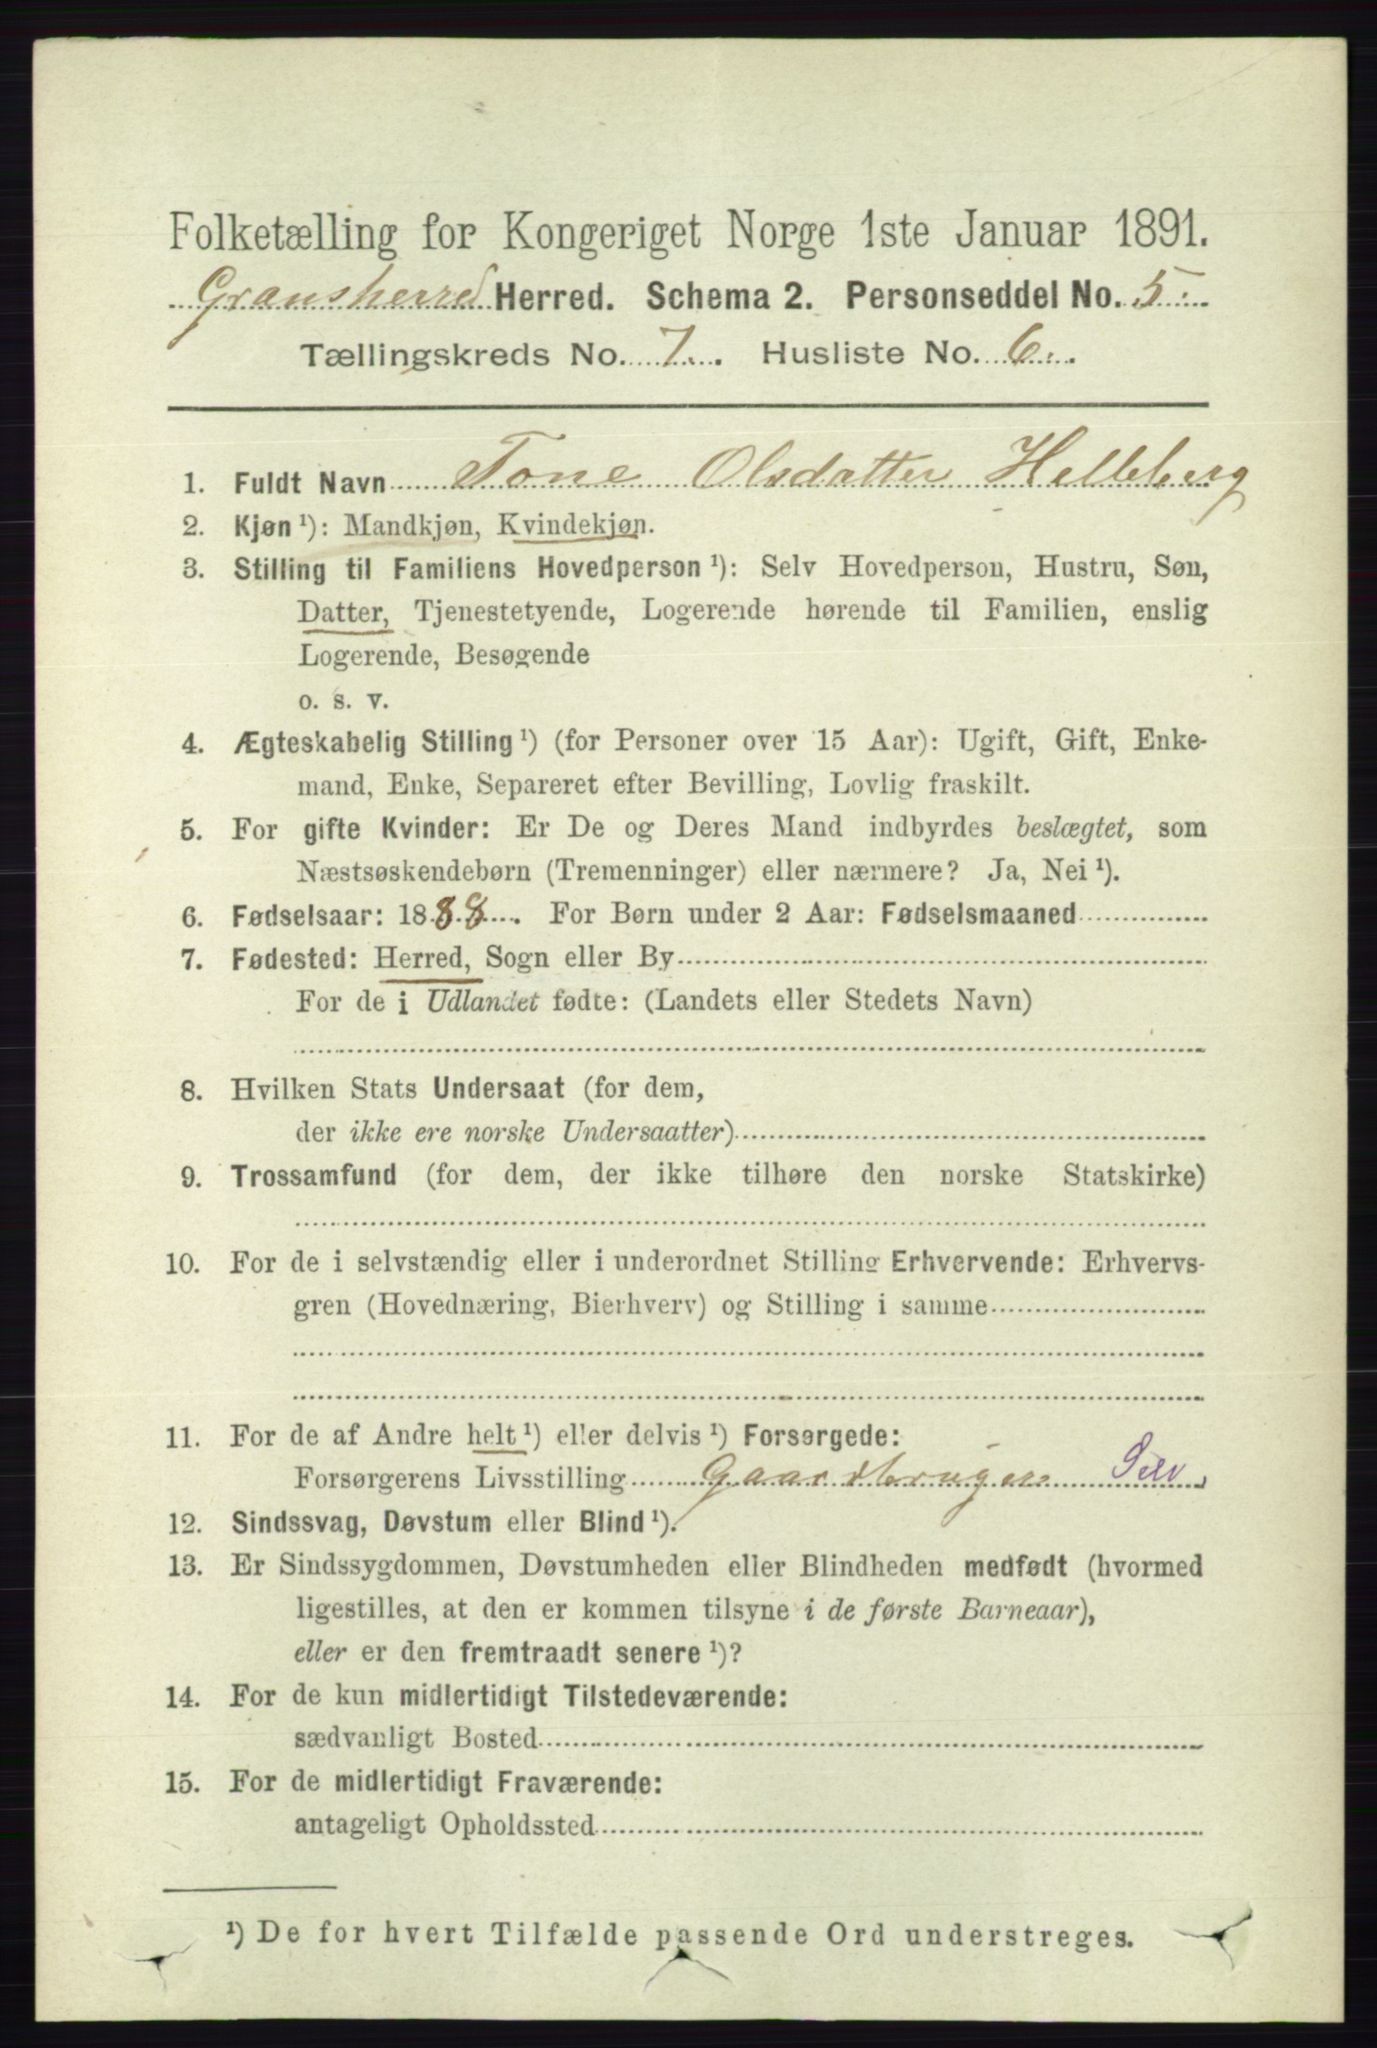 Folketælling for Kongeriget Norge 1ste Januar 1891.
Gransherred Herred. Schema 2. Personseddel No. 5.
Tællingskreds No. 7. Husliste No. 6.
1. Fuldt Navn Tone Olsdatter Helleberg
2. Kjøn ¹): Mandkjøn, Kvindekjøn.
3. Stilling til Familiens Hovedperson ¹): Selv Hovedperson, Hustru, Søn,
Datter, Tjenestetyende, Logerende hørende til Familien, enslig
Logerende, Besøgende
o. s. v.
4. Ægteskabelig Stilling ¹) (for Personer over 15 Aar): Ugift, Gift, Enke-
mand, Enke, Separeret efter Bevilling, Lovlig fraskilt.
5. For gifte Kvinder: Er De og Deres Mand indbyrdes beslægtet, som
Næstsøskendebørn (Tremenninger) eller nærmere? Ja, Nei ¹).
6. Fødselsaar: 1888. For Børn under 2 Aar: Fødselsmaaned
7. Fødested: Herred, Sogn eller By
For de i Udlandet fødte: (Landets eller Stedets Navn)
8. Hvilken Stats Undersaat (for dem,
der ikke ere norske Undersaatter)
9. Trossamfund (for dem, der ikke tilhøre den norske Statskirke)
10. For de i selvstændig eller i underordnet Stilling Erhvervende: Erhvervs-
gren (Hovednæring, Bierhverv) og Stilling i samme
11. For de af Andre helt ¹) eller delvis ¹) Forsørgede:
Forsørgerens Livsstilling Gaardbruger Selv
12. Sindssvag, Døvstum eller Blind ¹).
13. Er Sindssygdommen, Døvstumheden eller Blindheden medfødt (hvormed
ligestilles, at den er kommen tilsyne i de første Barneaar),
eller er den fremtraadt senere ¹)?
14. For de kun midlertidigt Tilstedeværende:
sædvanligt Bosted
15. For de midlertidigt Fraværende:
antageligt Opholdssted
¹) De for hvert Tilfælde passende Ord understreges.